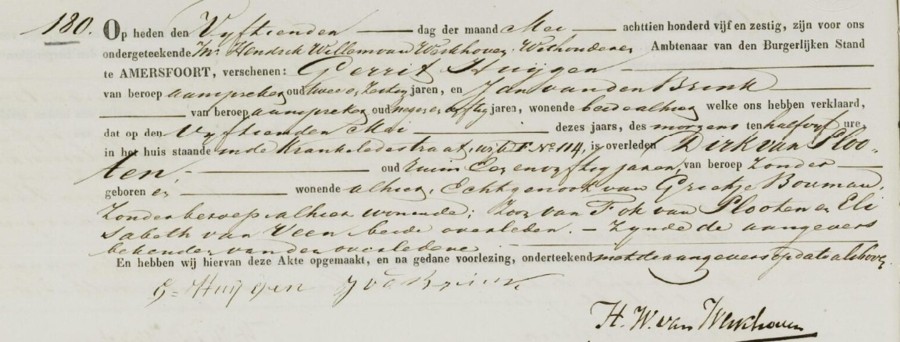 180. Op heden den Vyftienden dag der maand Mei achttien honderd vijf en zestig, zijn voor ons
ondergeteekende Mr. Hendrik Willem van Werkhoven, Wethouder Ambtenaar van den Burgerlijken Stand
te AMERSFOORT, verschenen: Gerrit Huijgen
van beroep aanspreker oud twee en zestig jaren, en Jan van den Brink
van beroep aanspreker oud vyftig jaren, wonende beide alhier welke ons hebben verklaard,
dat op den Vyftienden Mei dezes jaars, des morgens ten half vyf ure,
in het huis staande in de Krankeledestraat, wijk F No 114, is overleden Dirk van Ploo-
ten, oud ruim Een en vyftig jaren, van beroep Zonder
geboren en wonende alhier, Echtgenoot van Grietje Bouman,
Zonder beroep alhier wonende; Zoon van Fok van Plooten en Eli
sabeth van Veen beide overleden. – Zynde de aangevers
bekenden van den overledene
En hebben wij hiervan deze Akte opgemaakt, en na gedane voorlezing, onderteekend met de aangevers op dato als boven
G. Huijgen J vd Brink
H. W. van Werkhoven